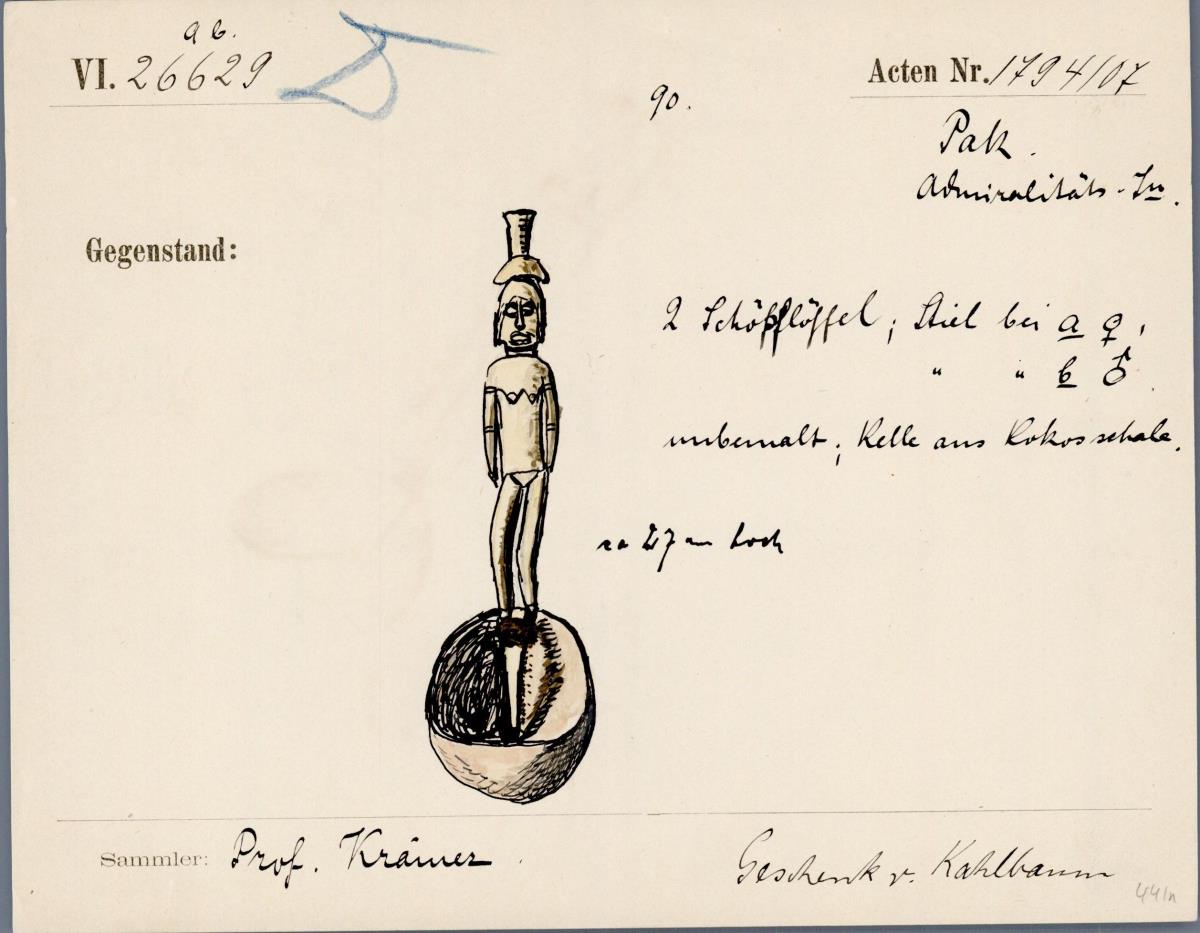 a b.
VI. 26629
Acten Nr. 1794/07
90.
Pak.
Admiralitäts-In.
Gegenstand:
2 Schöpflöffel; Stiel bei a ♀,
" " b ♂.
unbemalt; Kelle aus Kokosschale.
ca 27 cm hoch
Sammler: Prof. Krämer.
Geschenk v. Kahlbaum